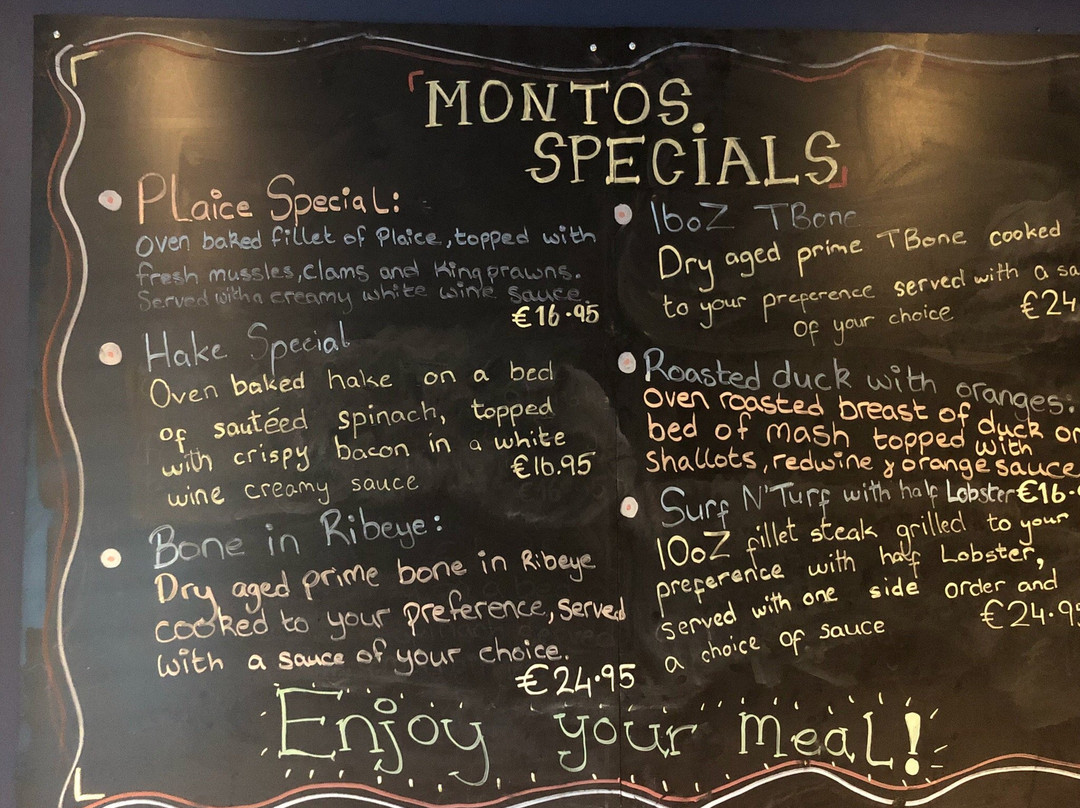 MONTOS
SPECIALS
PLaice SpeciaL:
Oven baked fillet of Plaice, topped with
fresh mussles, clams and King prawns.
Served with a creamy white wine sauce.
€16.95
Hake Special
Oven baked hake on a bed
of sautéed spinach, topped
with crispy bacon in a white
€16.95
wine creamy sauce
Bone in Ribeye:
Dry aged prime bone in Ribeye
cooked to your preference, served
with a sauce of your choice.
€24.95
16oZ TBone
Dry aged prime TBone cooked
to your preference served with a sa
of your choice €24
Roasted duck with oranges.
Oven roasted breast of duck on
bed of mash topped with
shallots, redwine & orange sauce
Surf N'Turf with half Lobster €16.
10oZ fillet steak grilled to your
preference with half Lobster,
served with one side order and
a choice of sauce €24.95
Enjoy your meaL!